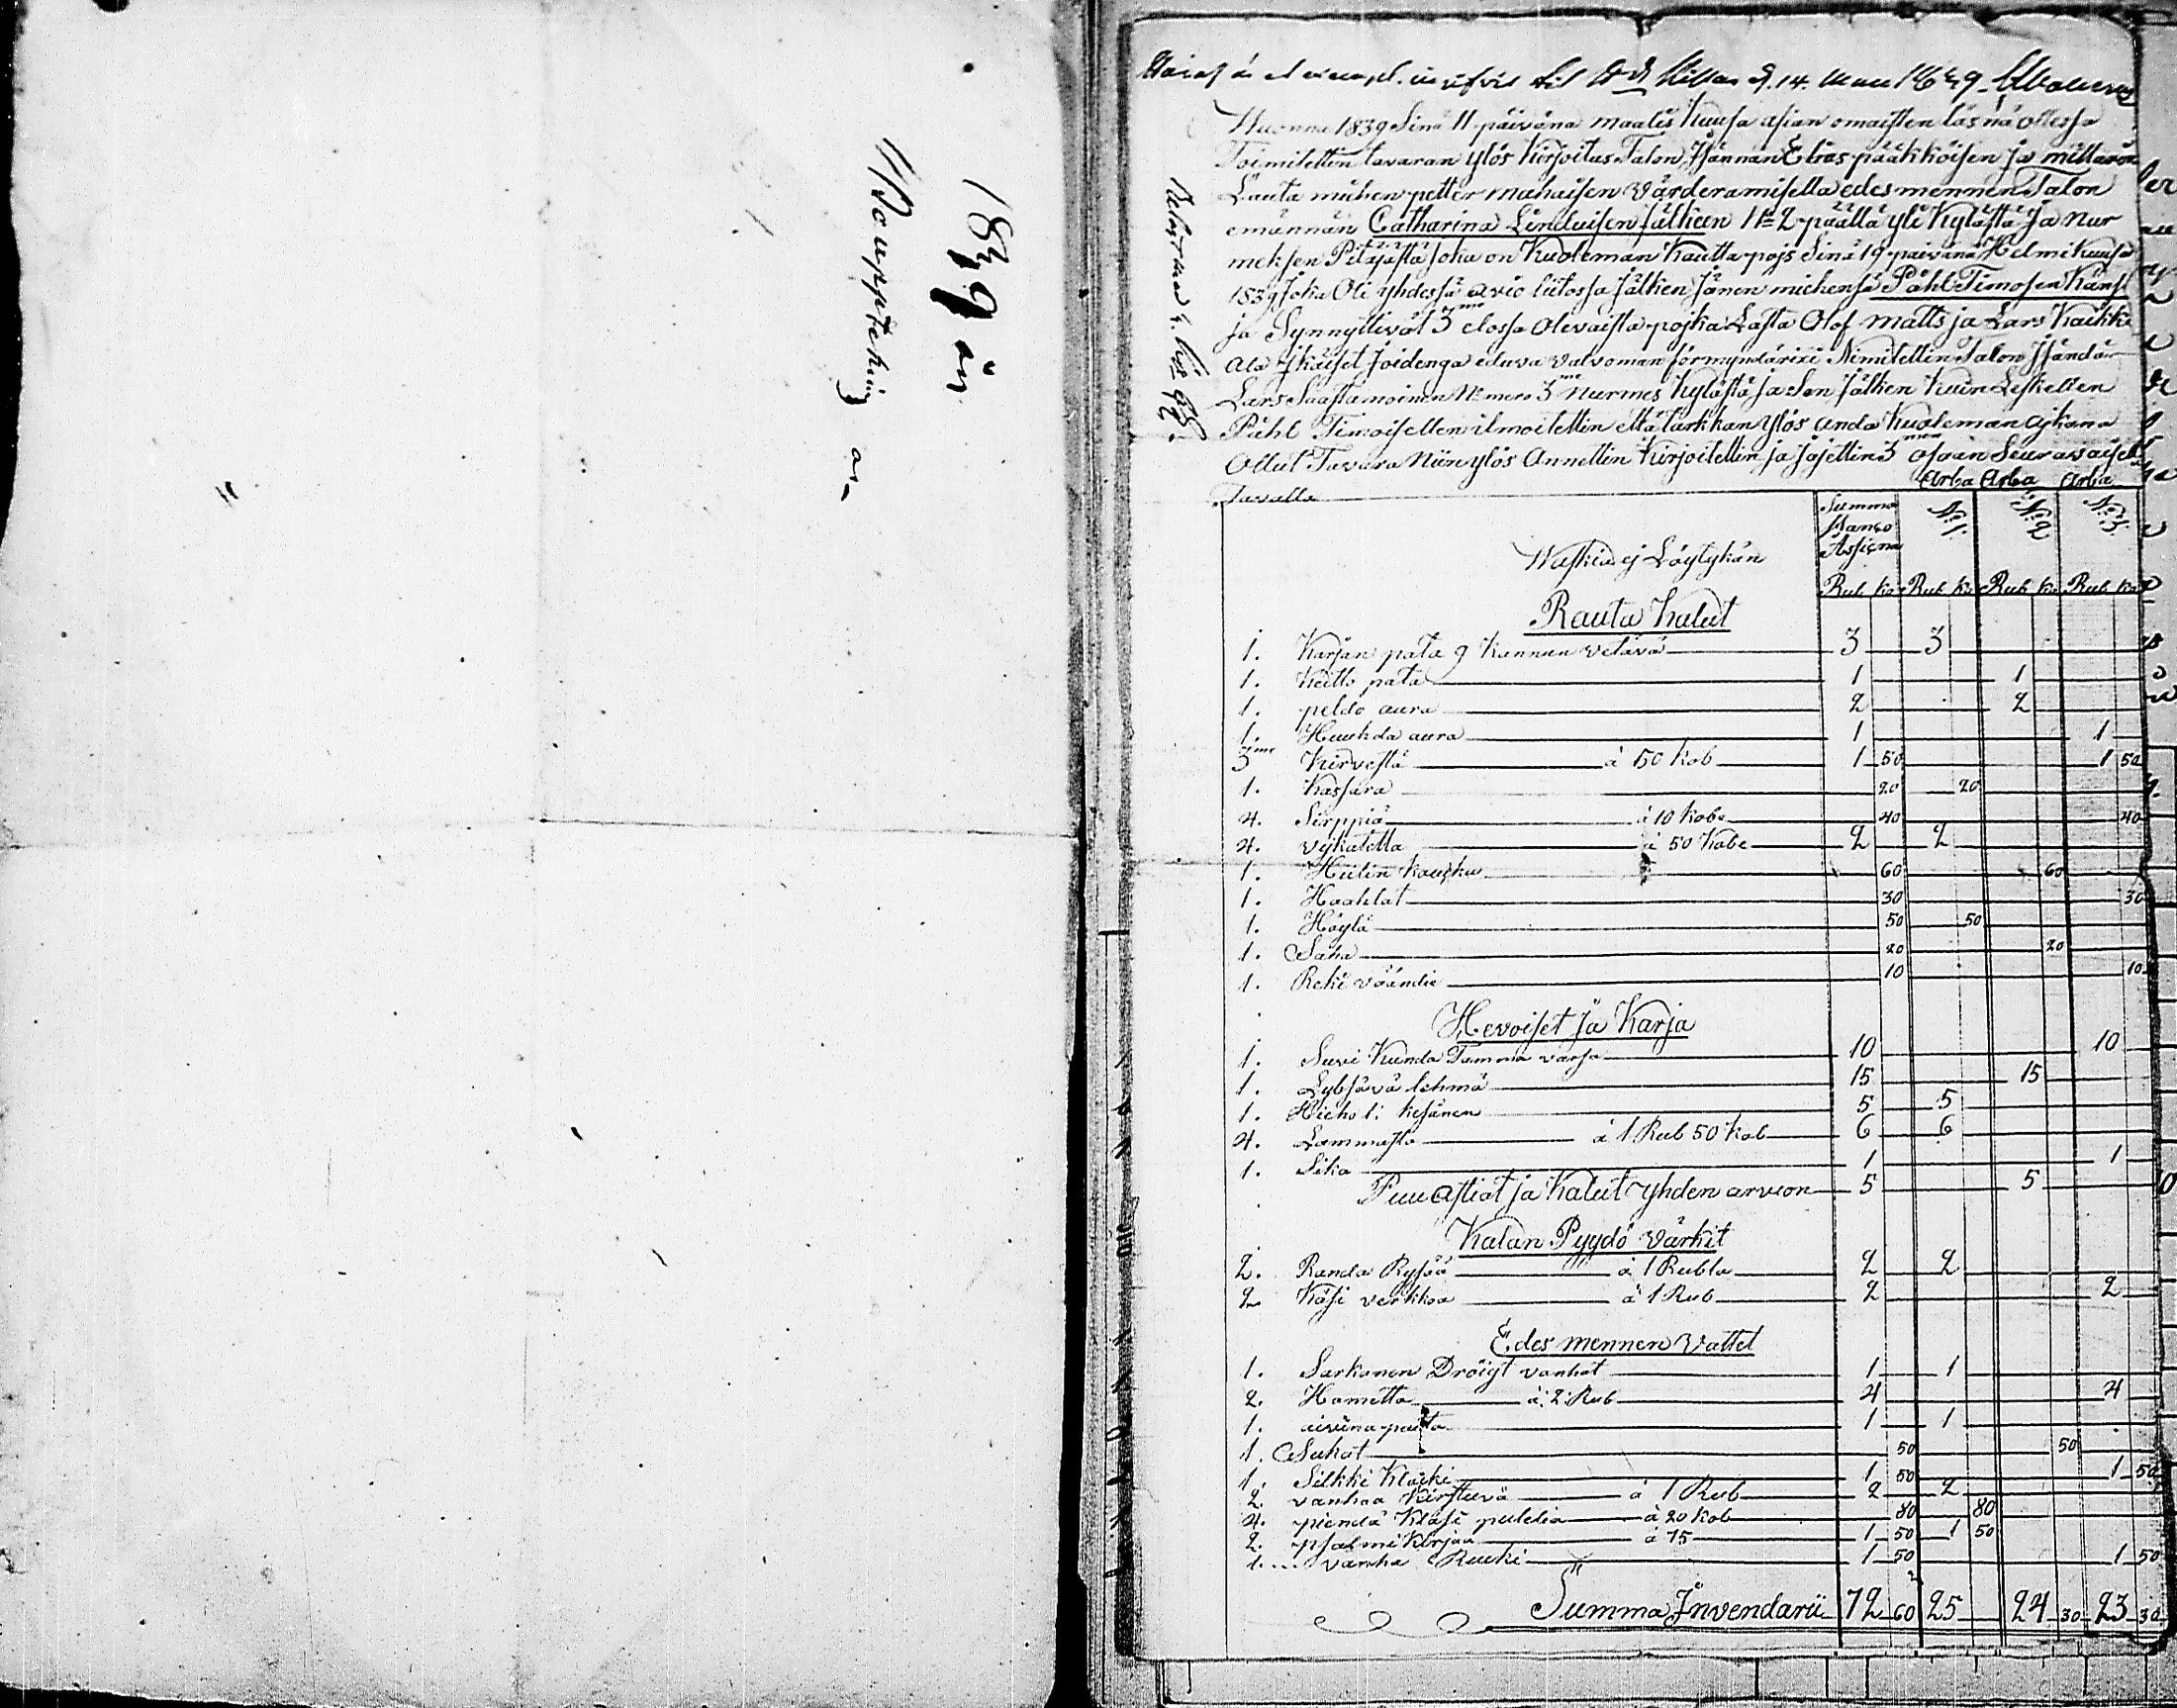 1839 år
Bouppteckning
14. 1839
Wuonna 1839 Sinä 11 päivänä maalis Kuusa asian omaisten läsnä ollessa
Toimitettin tavaran ylös Kirjoitus Talon Isännän Elias pääkköisen ja
Lauta miehen petter mahaisen värderamisella edesmennen Talon
emännän Catharina jälkeen No 2 päältä yli Kylästä ja Nur
meksen Pitäjästä joka on Kuoleman Kautta pojs Sinä 19 päivänä Helmikuusa
1839 joka Oli yhdessä avio liitossa jälkien jänen miehensä Påhl Timosen Kansa
ja Synnyttivät 3me elossa olevaista pojka Lasta Olof matts ja Lars Kaikki
ala Ikäiset Joidenga eduva valvoman förmyndärixi Nimitettin Talon Isändä
Lars Saastamoinen Numero 3 Nurmes Kylästä ja Sen jälken Kuin Leskellen
Påhl Timoisellen ilmoitettin että tarkkan ylös anda Kuoleman ajkana
Ollut Tavara Niin ylös Annettin Kirjoitettin ja jajettin 3men osaan Seuravaisella
Tavalla
Arba Arba Arba
Summa Banco Assigna No 1. No 2 No 3.
Rub Ko Rub Ko Rub Ko Rub Ko
Waskia ej Löytykän
Rauta Kalut
1. Karjan pata 9 Kannun vetävä 3 3
1. Keitto pata 1 1
1. peldo aura 2 2
1. Huuhda aura 1 1
3me Kirvestä à 50 Kob 1 50 1 50
1. Kassara 20 20
4. Sirppiä à 10 Kobe 40 40
4. vykatetta à 50 Kobe 2 2
1. Hiilin 60 60
1. Haahlat 30 30
1. Höylä 50 50
1. Saha 20 20
1. Reki väändie 10 10
Hevoiset ja Karja
1. Suvi Kunda Tamma varsa 10 10
1. Lybsävä lehmä 15 15
1. Hieho 1: kesänen 5 5
4. Lammasta à 1 Rub 50 Kob 6 6
1. Sika 1 1
Puu astiat ja Kalut yhden arvion 5 5
Kalan Pyydö Värkit
2. Randa Rysää à 1 Rubla 2 2
2. Käsi verkkoa à 1 Rub 2 2
Edes mennen Vattet
1. Sarkanen Dröigt vanhat 1 1
2. Hametta à 2 Rub 4 4
1. aivina paita 1 1
1. Sukat 50 50
1. Silkki 1 50 1 50
2. vanhaa Kirstuvä à 1 Rub 2 2
4. piendä Klasi puldia à 20 Kob 80 80
2. psalmi Kirjaa à 75 1 50 1 50
1. vanha Rucki 1 50 1 50
Summa Invendarii 72 60 25 24 30 23 30